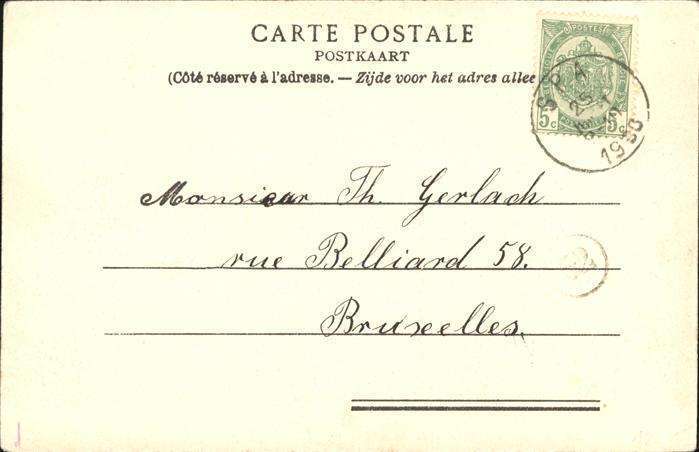 CARTE POSTALE
POSTKAART
(Côté réservé à l'adresse. — Zijde voor het adres allee
POSTES
5c 5c
SPA
25
Monsieur Th. Gerlach
rue Belliard 58.
Bruxelles.